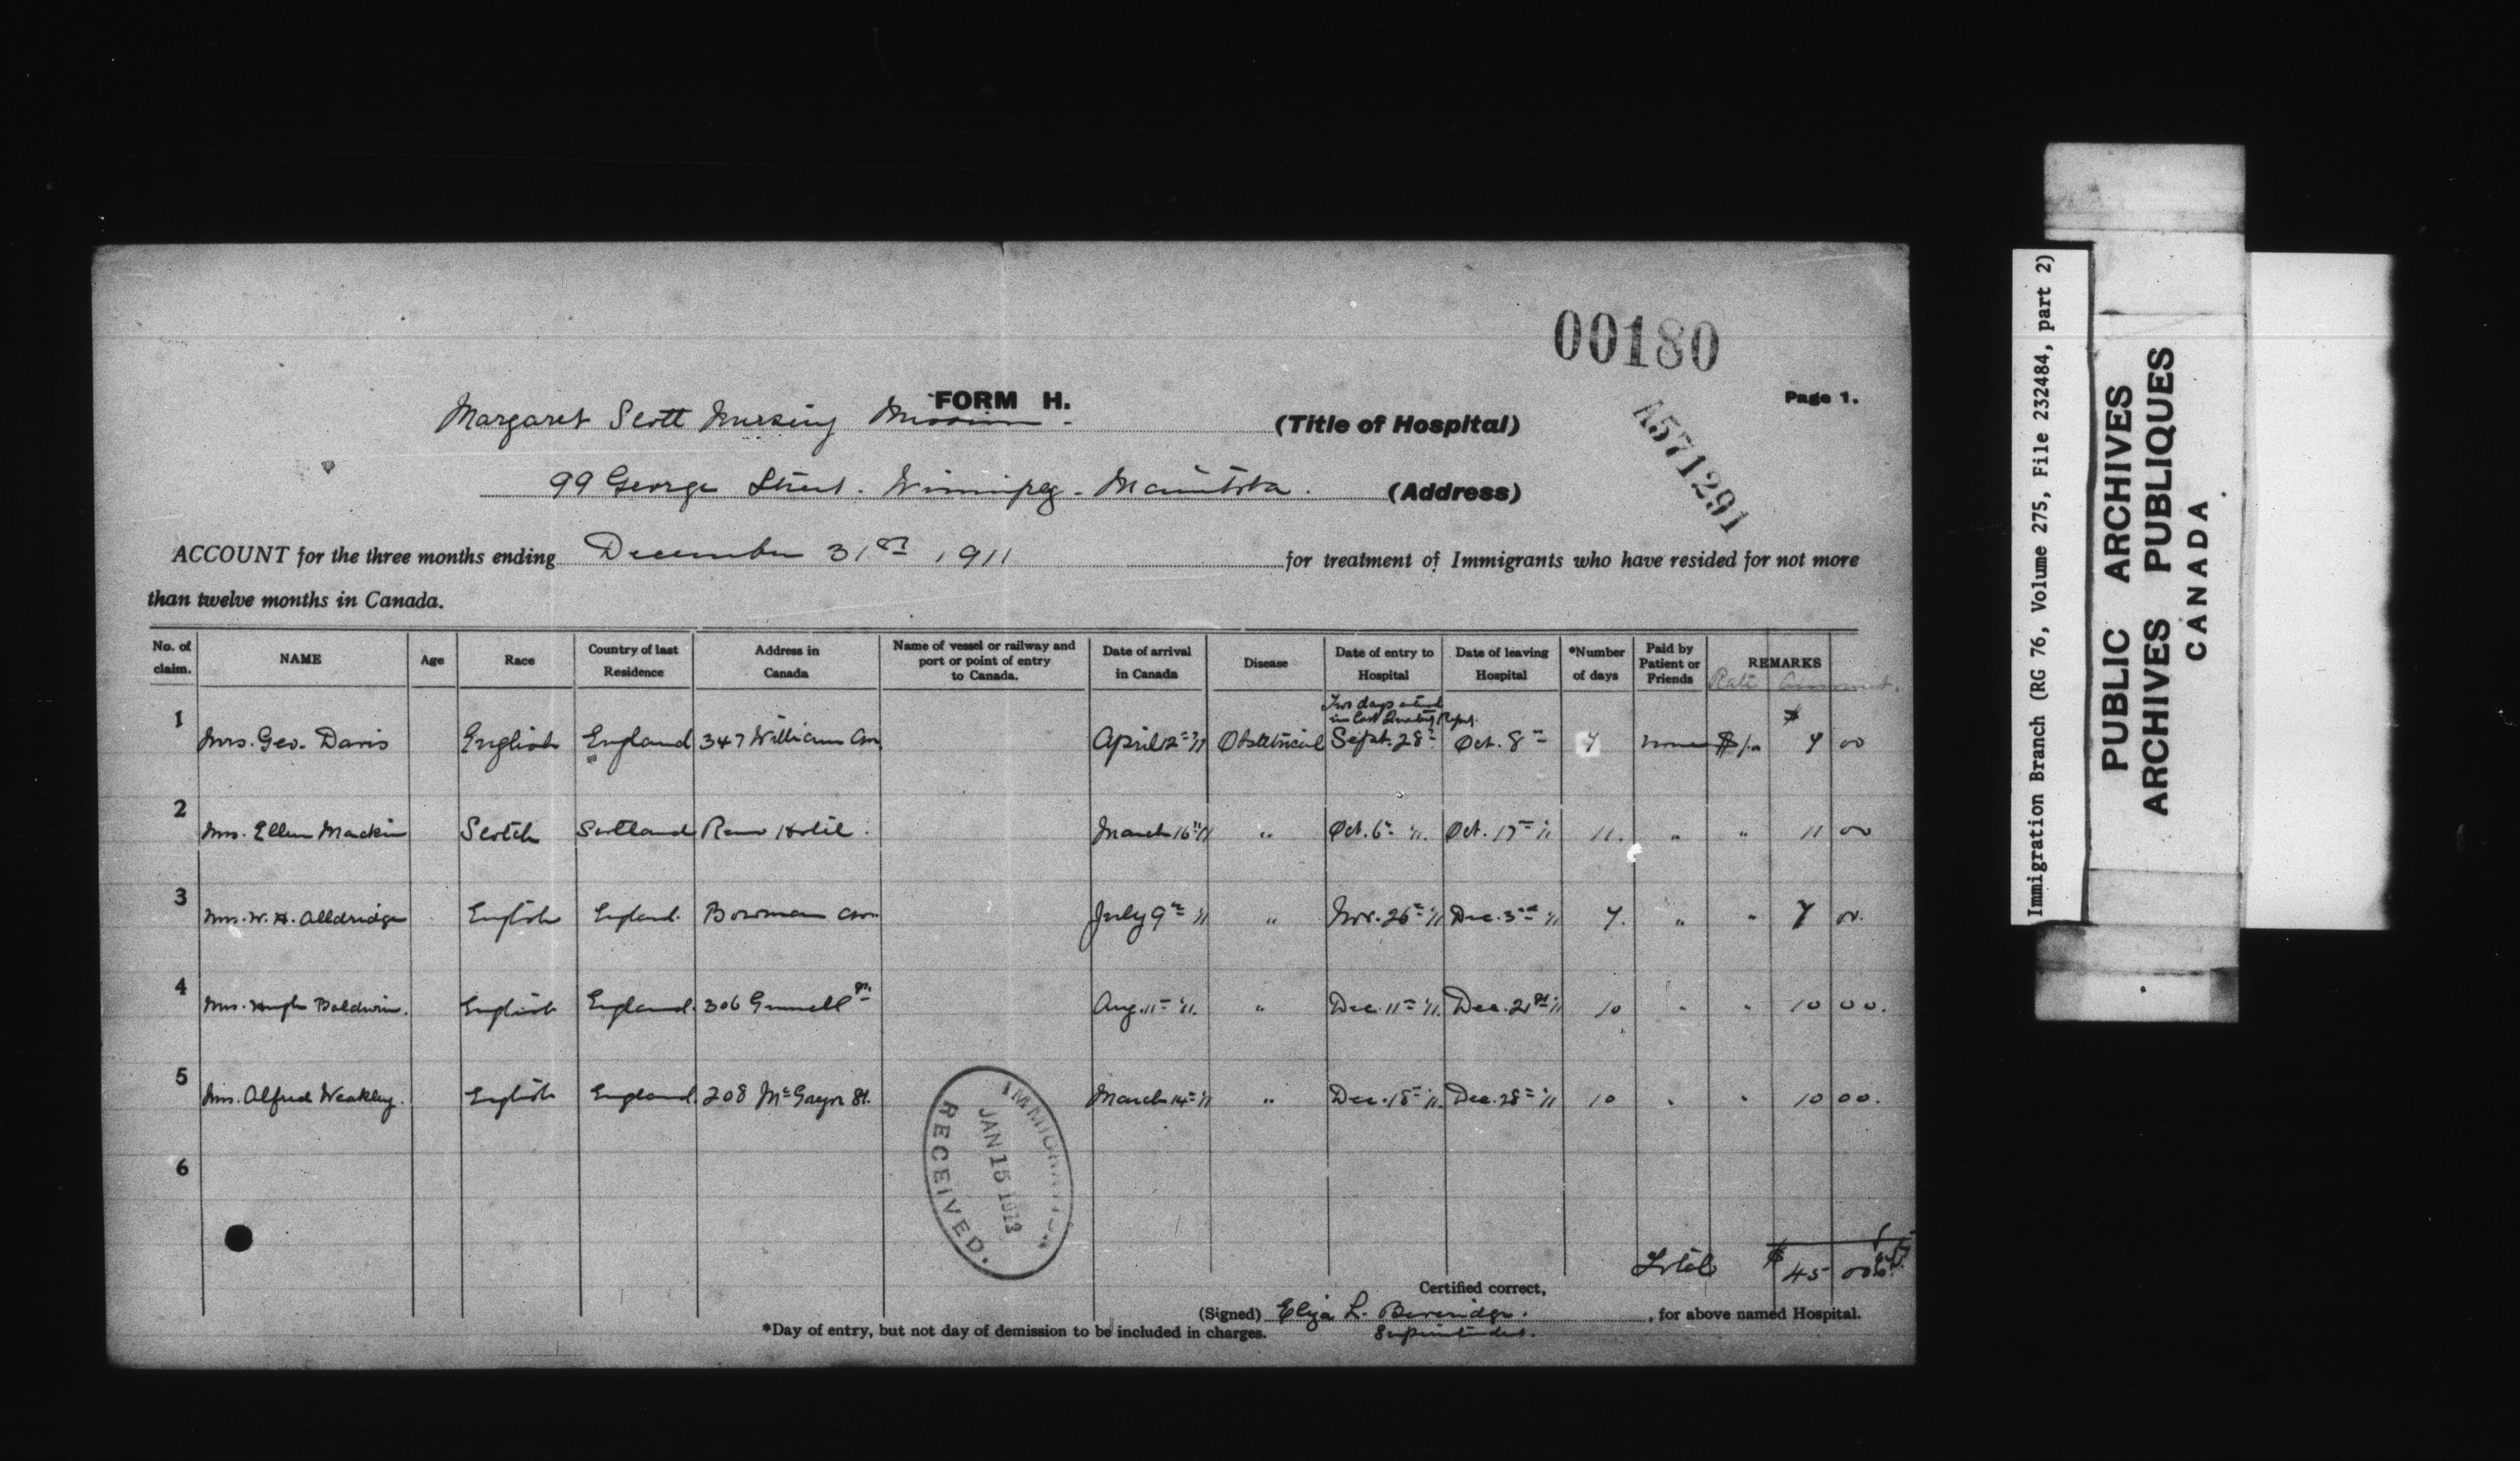 00180
FORM H.
Page 1.
Margaret Scott Nursing Mission. (Title of Hospital)
A571291
99 George Street. Winnipeg. Manitoba. (Address)
ACCOUNT for the three months ending December 31st 1911 for treatment of Immigrants who have resided for not more
than twelve months in Canada.
No. of claim. NAME Age Race Country of last Residence Address in Canada Name of vessel or railway and port or point of entry to Canada. Date of arrival in Canada Disease Date of entry to Hospital Date of leaving Hospital *Number of days Paid by Patient or Friends REMARKS
Rate Amount.
Two days entered in last Quarterly Report.
1 Mrs. Geo. Davis English England 347 William Av. April 12th '11 Obstetrical Sept. 28th Oct. 8th 7 none $1.00 $ 7 00
2 Mrs. Ellen Mackin Scotch Scotland Hotel. March 16th '11 " Oct. 6th '11. Oct. 17th '11 11. " " 11 00
3 Mrs. W. H. Alldridge English England. Bowman Av. July 9th '11 " Nov. 26th '11 Dec. 3rd '11 7. " " 7 00.
4 Mrs. Hugh Baldwin. English England. 306 St. Aug. 11th '11. " Dec. 11th '11. Dec. 21st '11 10 " " 10 00.
5 Mrs. Alfred Weakley. English England. 208 St. March 14th '11 " Dec. 18th '11. Dec. 28th '11 10 " " 10 00.
6
IMMIGRATION
JAN 15 1912
RECEIVED.
Total $ 45 00
Certified correct,
(Signed) Eliza L. Beveridge. , for above named Hospital.
*Day of entry, but not day of demission to be included in charges. Superintendent.
Immigration Branch (RG 76, Volume 275, File 232484, part 2)
PUBLIC ARCHIVES
ARCHIVES PUBLIQUES
CANADA